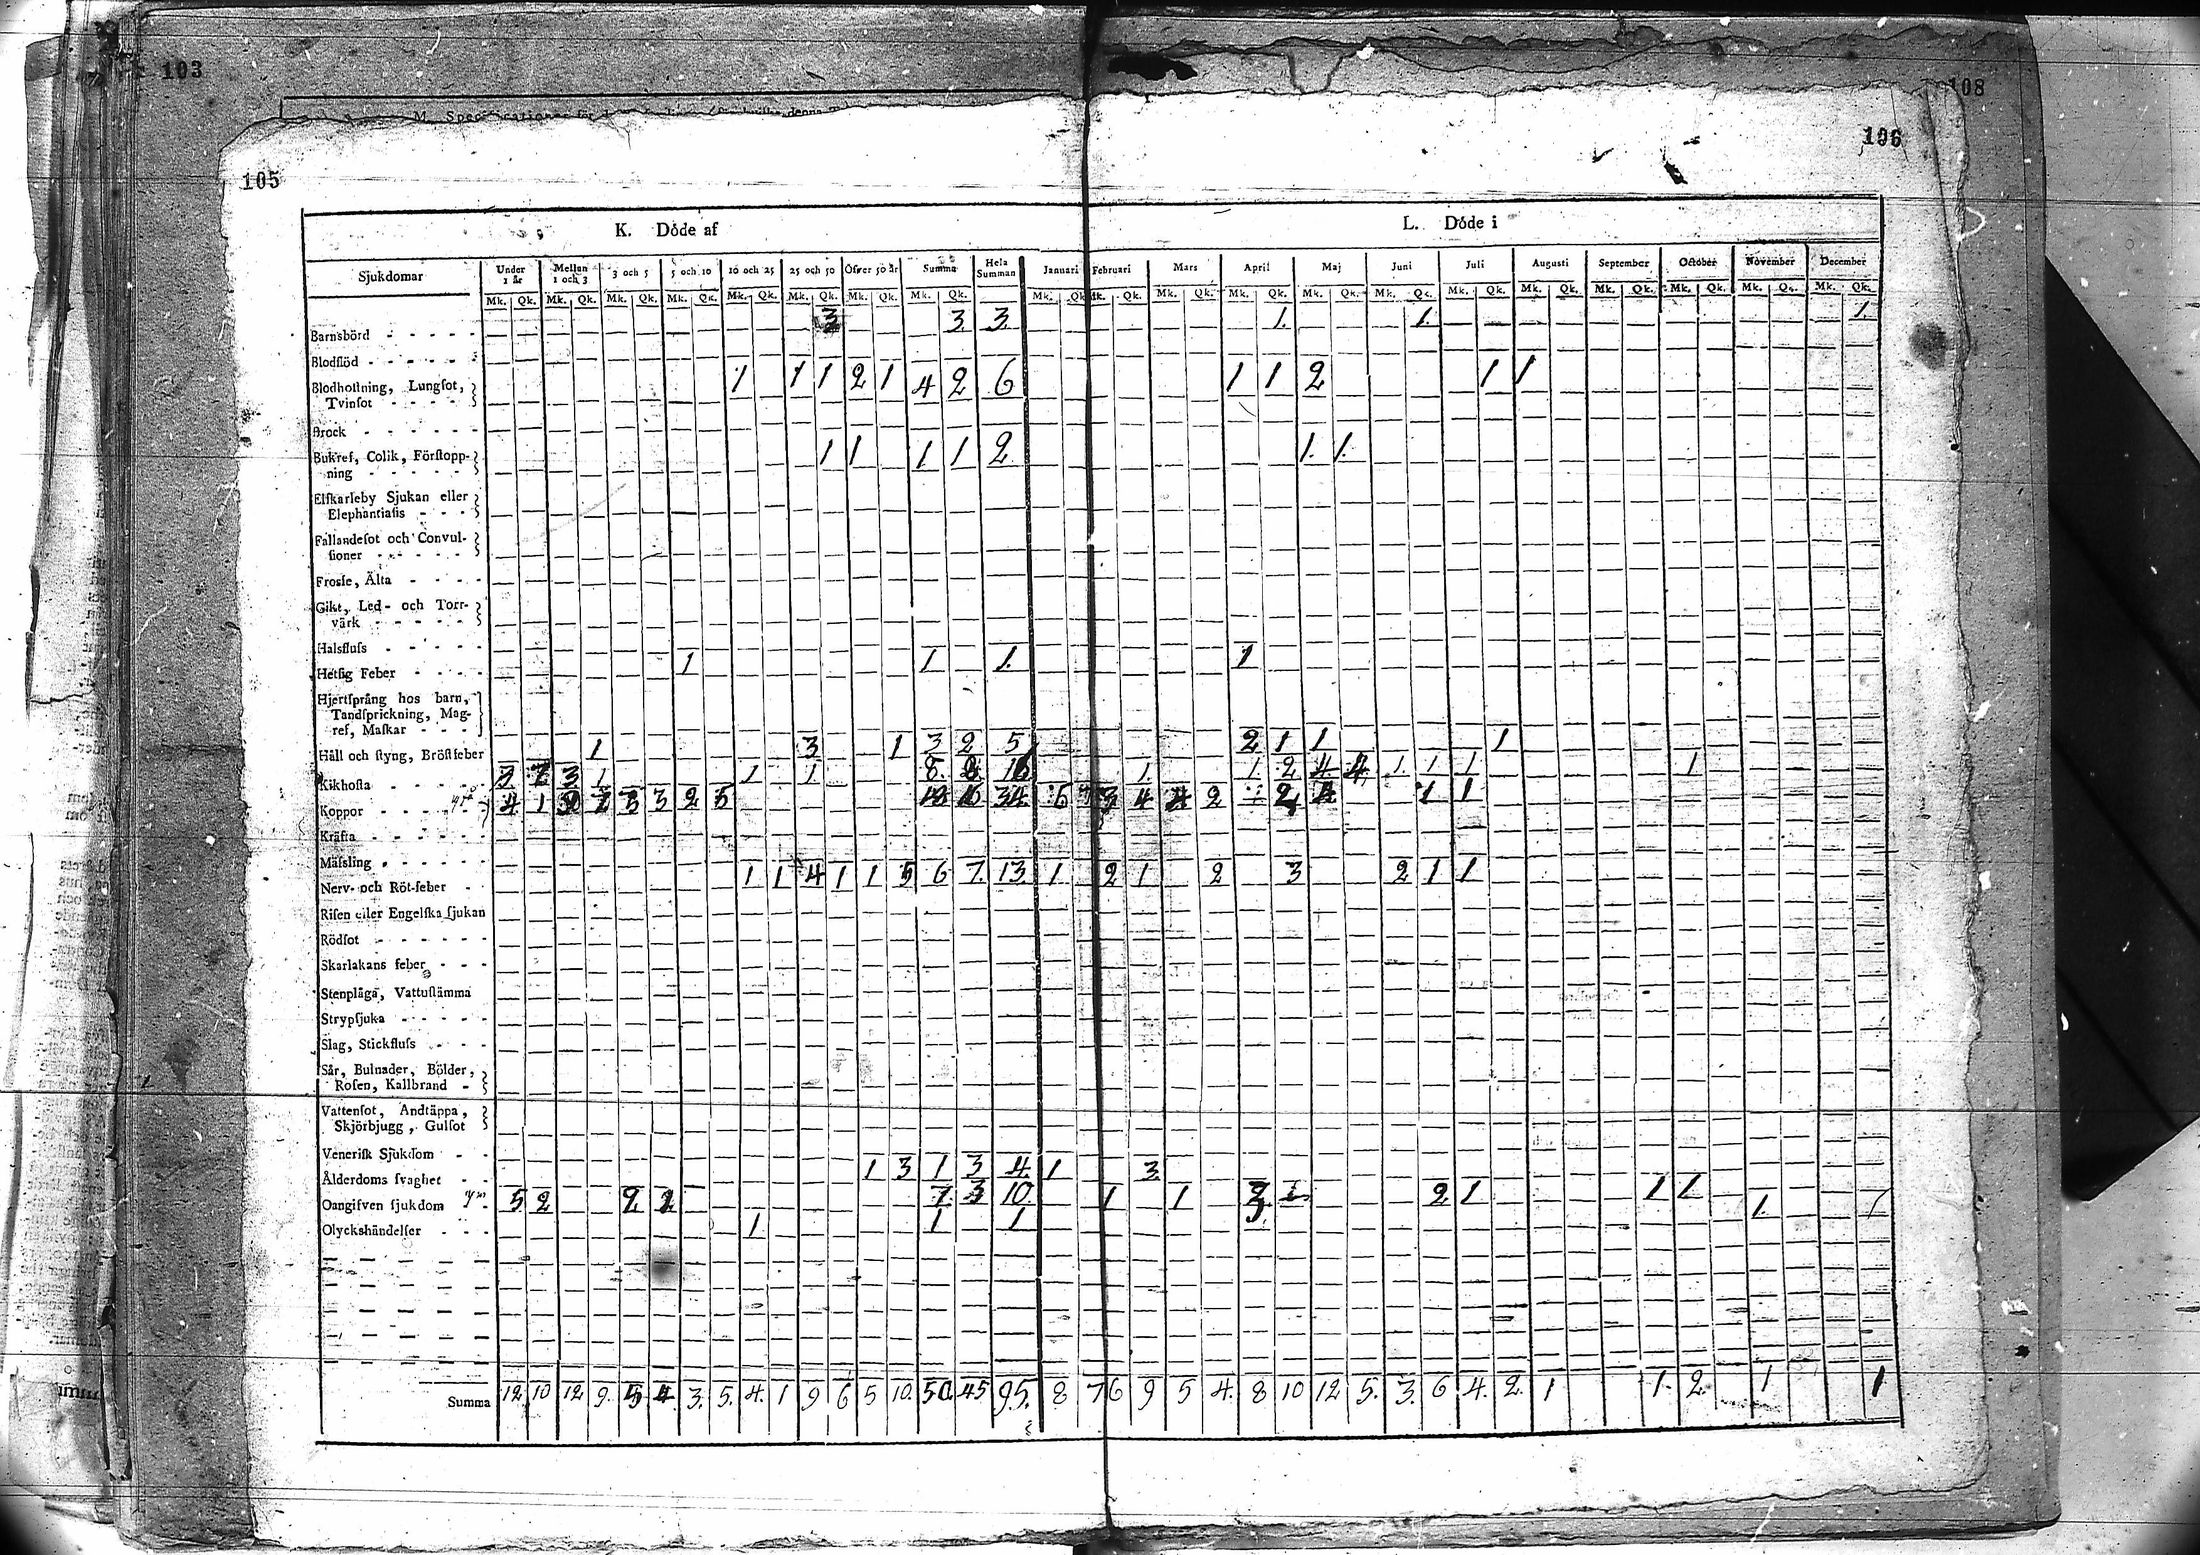 103
108
105
106
K. Döde af
L. Döde i
Sjukdomar
Under 1 år
Mellan 1 och 3
3 och 5
5 och 10
10 och 25
25 och 50
Öfver 50 år
Summa
Hela Summan
Januari
Februari
Mars
April
Maj
Juni
Juli
Augusti
September
October
November
December
Mk. Qk. Mk. Qk. Mk. Qk. Mk. Qk. Mk. Qk. Mk. Qk. Mk. Qk. Mk. Qk. Mk. Qk. Mk. Qk. Mk. Qk. Mk. Qk. Mk. Qk. Mk. Qk. Mk. Qk. Mk. Qk. Mk. Qk. Mk. Qk. Mk. Qk. Mk. Qk.
Barnsbörd - - - - - 3 3 3. 1. 1. 1.
Blodflöd - - - - - -
Blodhoſtning, Lungſot,
Tvinſot - - - - 1 1 1 2 1 4 2 6 1 1 2 1 1
Brock - - - - - -
Bukref, Colik, Förſtopp-
ning - - - - - 1 1 1 1 2 1. 1.
Elſkarleby Sjukan eller
Elephantiaſis - - - -
Fallandeſot och Convul-
ſioner - - - - -
Frosſe, Älta - - - -
Gikt, Led- och Torr-
värk - - - - -
Halsfluſs - - - - -
Hetſig Feber - - - - 1 1 1. 1
Hjertſprång hos barn,
Tandſprickning, Mag-
ref, Maſkar - - -
Håll och ſtyng, Bröſtfeber 1 3 1 3 2 5 2 1 1 1
Kikhoſta - - - - - 3 1 1 1 8. 1. 1 2 4 4 1. 1 1 1
Koppor - - - - - 4 1 3 3 2 5 34. 3 4 2 1 1
Kräfta - - - - - -
Mäſsling - - - - - -
Nerv- och Röt-feber - - 1 1 4 1 1 5 6 7. 13. 1 2 1 2 3 2 1 1
Riſen eller Engelſka ſjukan
Rödſot - - - - - -
Skarlakans feber - - -
Stenplåga, Vattuſtämma
Strypſjuka - - - - -
Slag, Stickfluſs - - -
Sår, Bulnader, Bölder,
Roſen, Kallbrand -
Vattenſot, Andtäppa,
Skjörbjugg, Gulſot
Veneriſk Sjukdom - -
Ålderdoms ſvaghet - - 1 3 1 3 4. 1 3.
Oangifven ſjukdom 5 2 2 2 7. 3 10. 1 1 2 2 1 1 1 1.
Olyckshändelſer - - - 1 1 1
Summa 12. 10 12. 9. 5 4. 3. 5. 4. 1 9 6 5 10. 50. 45 95. 8 7 6 9 5 4. 8 10 12 5. 3. 6 4. 2. 1 1. 2. 1 1